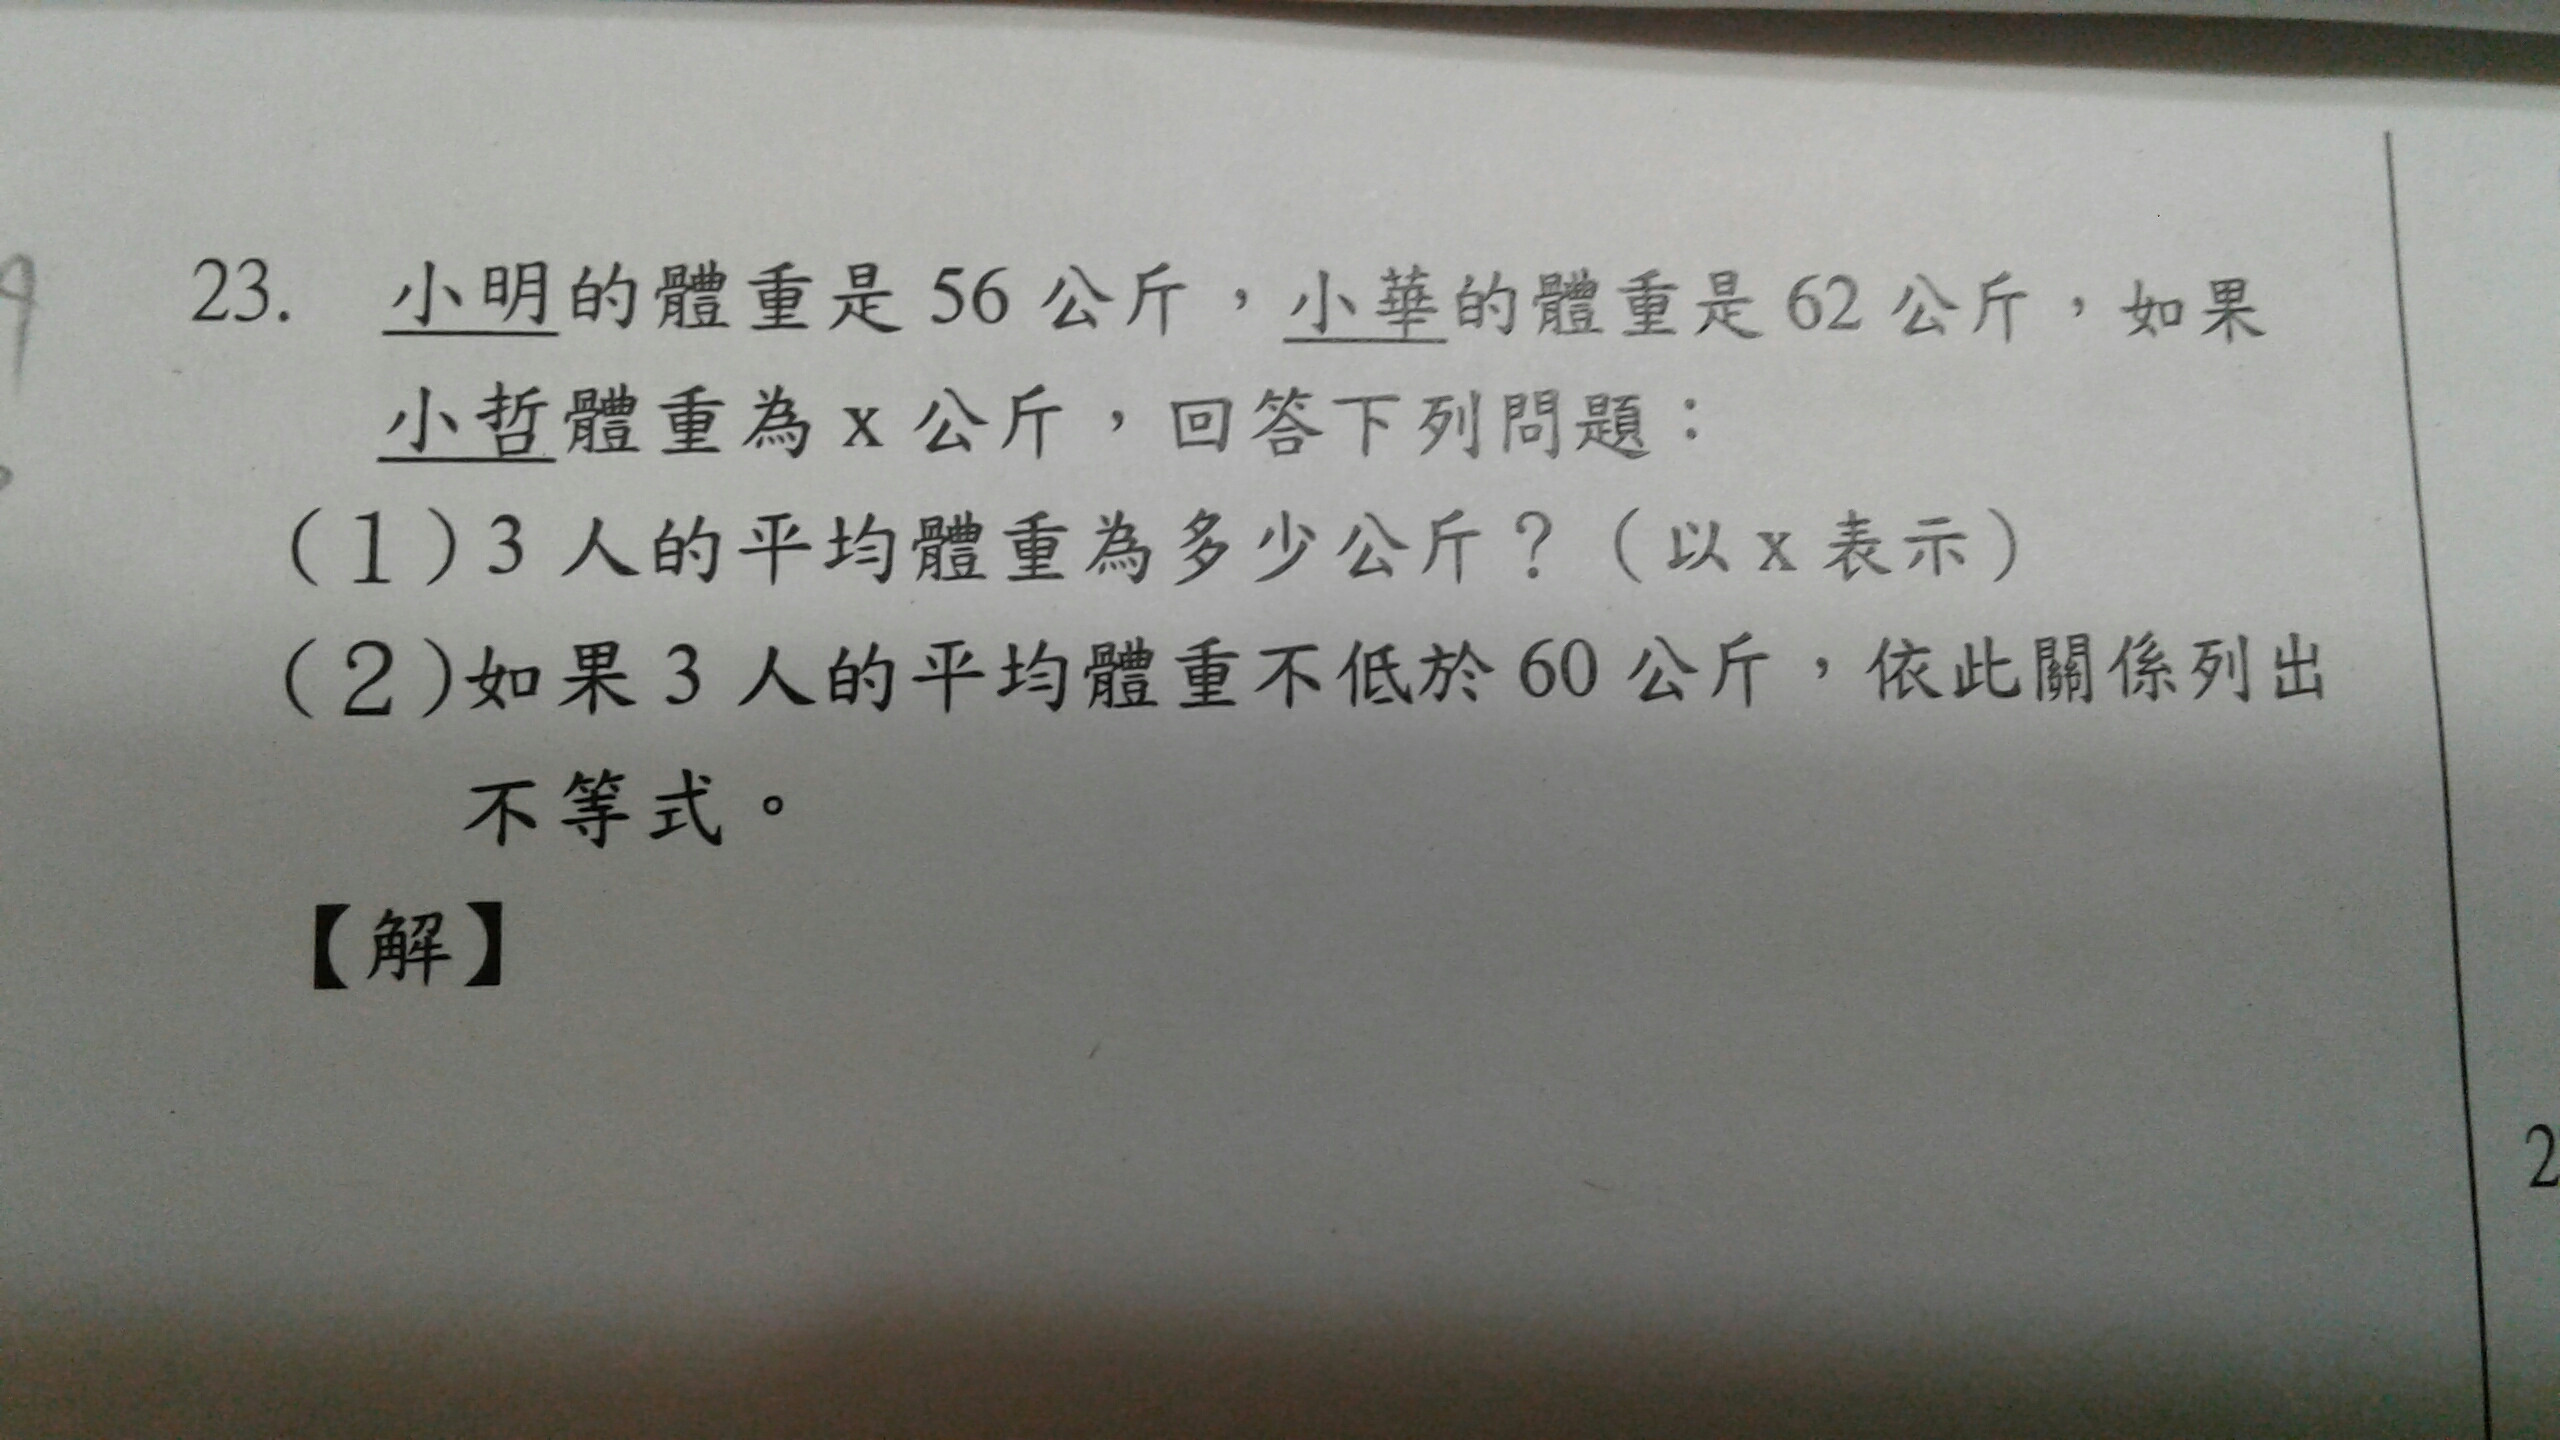 23. 小明的體重是 56 公斤，小華的體重是 62 公斤，如果
小哲體重為 x 公斤，回答下列問題：
（1）3 人的平均體重為多少公斤？（以 x 表示）
（2）如果 3 人的平均體重不低於 60 公斤，依此關係列出
不等式。
【解】
2